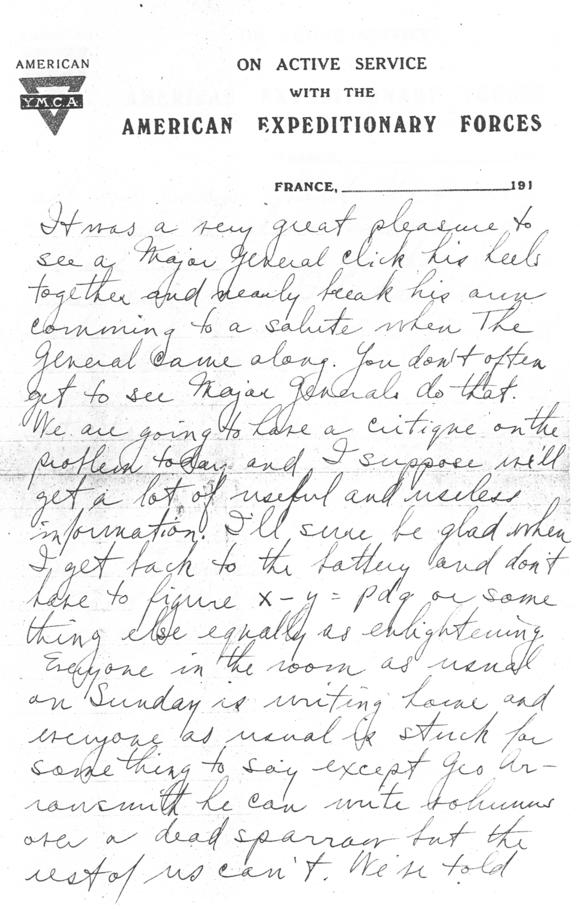 AMERICAN
Y.M.C.A.
ON ACTIVE SERVICE
WITH THE
AMERICAN EXPEDITIONARY FORCES
FRANCE, 191
It was a very great pleasure to
see a Major General click his heels
together and nearly break his arm
comming to a salute when The
General came along. You don't often
get to see Major Generals do that.
We are going to have a critique on the
problem today and I suppose we'll
get a lot of useful and useless
information. I'll sure be glad when
I get back to the battery and don't
have to figure x - y = pdq or some
thing else equally as enlightening.
Everyone in the room as usual
on Sunday is writing home and
everyone as usual is stuck for
something to say except Geo Ar-
rowsmith he can write volumns
over a dead sparrow but the
rest of us can't. We've told